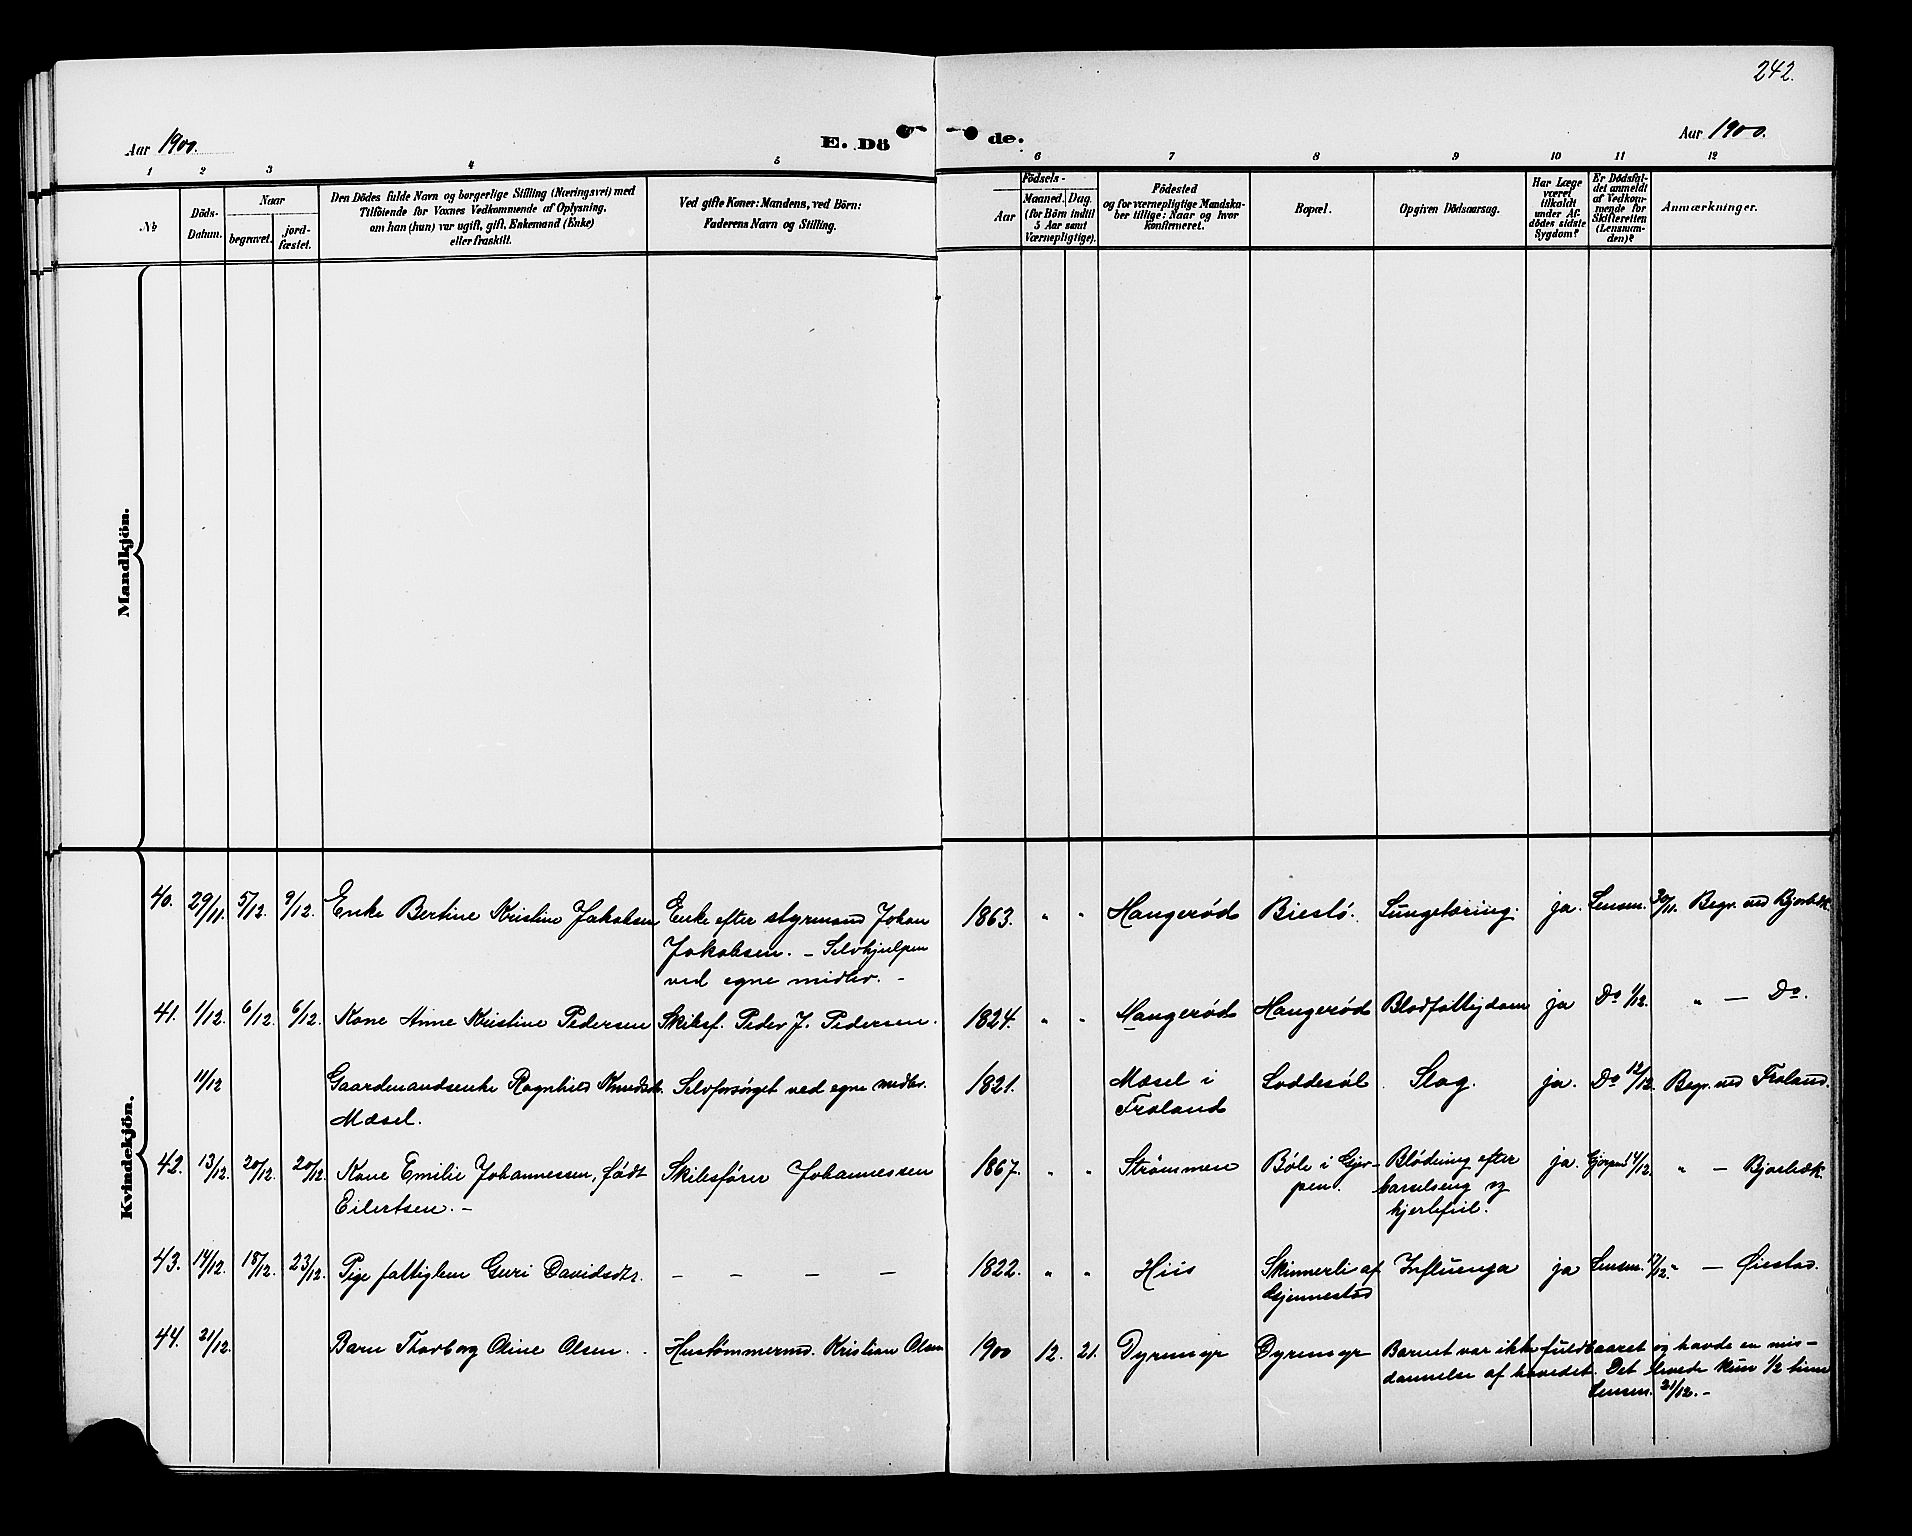 242.
Aar 1900.
E. Dö de.
Aar 1900.
1 2 3 4 5 6 7 8 9 10 11 12
№
Döds-
Datum.
Naar
begravet.
jord-
fæstet.
Den Dödes fulde Navn og borgerlige Stilling (Næringsvei) med
Tilföiende for Voxnes Vedkommende af Oplysning,
om han (hun) var ugift, gift, Enkemand (Enke)
eller fraskilt.
Ved gifte Koner: Mandens, ved Börn:
Faderens Navn og Stilling.
Födsels-
Aar
Maaned. Dag.
(for Börn indtil
5 Aar samt
Værnepligtige).
Födested
og for værnepligtige Mandska-
ber tillige: Naar og hvor
konfirmeret.
Bopæl.
Opgiven Dödsaarsag.
Har Læge
været
tilkaldt
under Af-
dödes sidste
Sygdom?
Er Dödsfal-
det anmeldt
af Vedkom-
mende for
Skifteretten
(Lensman-
den)?
Anmærkninger.
Mandkjön.
Kvindekjön.
40. 29/11. 5/12. 9/12. Enke Bertine Kristine Jakobsen Enke efter styrmand Johan 1863. " " Hangerød Biestø. Lungetæring. ja. Lensm. 30/11. Begr. ved Bjorbæk.
Jakobsen. – Selvhjulpen
ved egne midler. –
41. 1/12. 6/12. 6/12. Kone Anne Kristine Pedersen Skibsf. Peder J. Pedersen. 1824. " " Mangerød Hangerød Blodfattigdom ja Do 1/12. " — Do.
11/12 Gaardmandsenke Ragnhild Knudsdtr. Selvforsørget ved egne midler. 1821. Mæsel i Loddesøl. Slag. ja. Do 12/12. Begr. ved Froland.
Mæsel. Froland
42. 13/12. 20/12. 20/12. Kone Emilie Johannessen, født Skibsfører Johannessen 1867. " " Strømmen Bøle i Gjer- Blødning efter ja. Gjerpen 14/12. " — Bjorbæk.
Eilertsen. – pen. barselseng og
hjertefeil.
43. 14/12. 18/12. 23/12. Pige fattiglem Guri Davidsdtr. – – – – 1822. " " Hiis Skinnerli af Influenza ja Lensm. 17/12. " — Øiestad.
Gjennestad
44. 21/12. Barn Thorborg Oline Olsen. Hustømmermd. Kristian Olsen 1900 12. 21. Dyremyr Dyremyr Barnet var ikke fuldbaaret og havde en mis-
dannelse af hovedet. Det levede kun 1/2 time
Lensm. 21/12. –